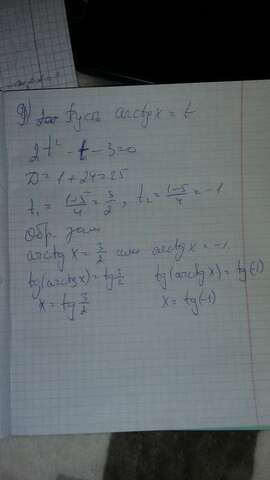 9) Пусть arctgx = t
2t² - t - 3 = 0
D = 1 + 24 = 25
t₁ = (1+5)/4 = 3/2, t₂ = (1-5)/4 = -1
Обр. зам
arctg x = 3/2 или arctg x = -1
tg(arctgx) = tg 3/2 tg(arctg x) = tg(-1)
x = tg 3/2 x = tg(-1)